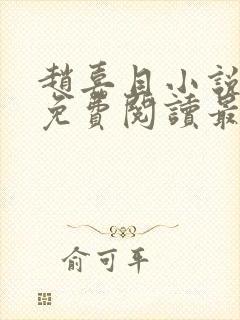 趙喜目小說
免費閱讀最
俞可平